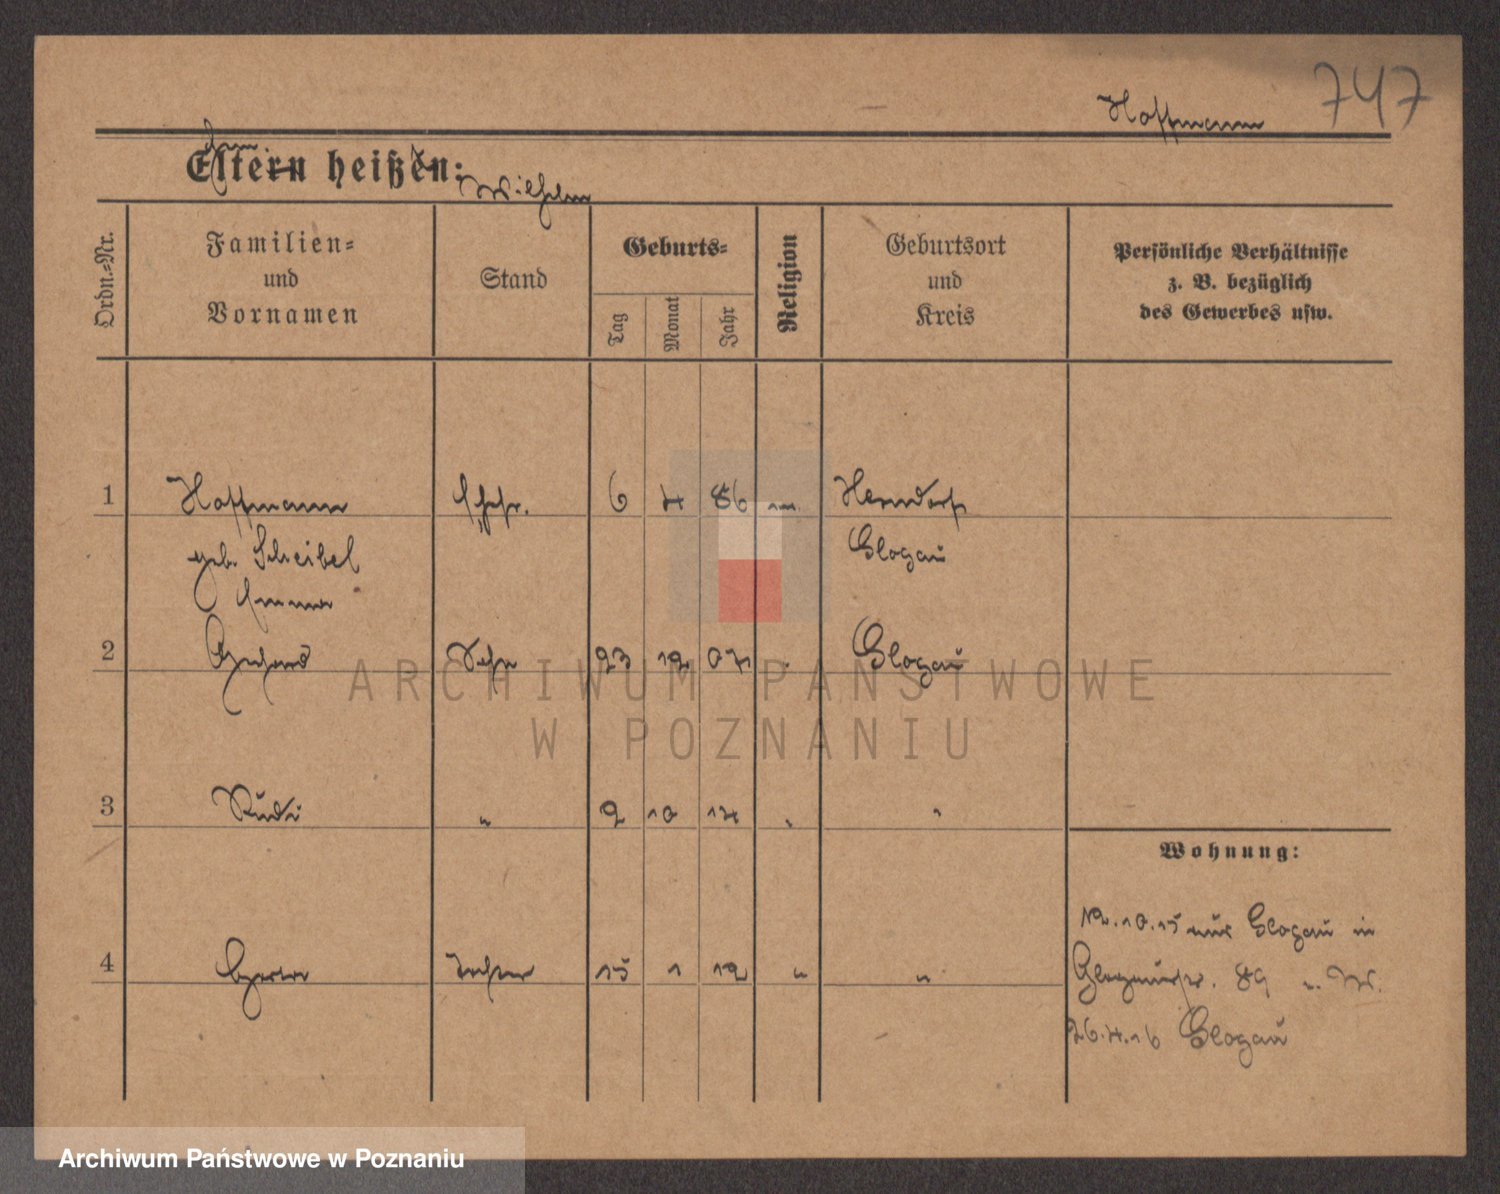 Hoffmann 747
Eltern heißen:
Wilhelm
Ordn.=Nr.
Familien=
und
Vornamen
Stand
Geburts=
Tag
Monat
Jahr
Religion
Geburtsort
und
Kreis
Persönliche Verhältnisse
z. B. bezüglich
des Gewerbes usw.
1 Hoffmann Ehefr. 6 4 86 Herrndorf
geb. Scheibel Glogau
Emma
2 Sohn 23 12 07 " Glogau
3 Rudi " 2 10 14 " "
Wohnung:
12.10.15 aus Glogau in
4 Herta Tochter 15 1 12 " "
Glogauerstr. 89 b. W.
26.4.16 Glogau
ARCHIWUM PAŃSTWOWE
W POZNANIU
Archiwum Państwowe w Poznaniu